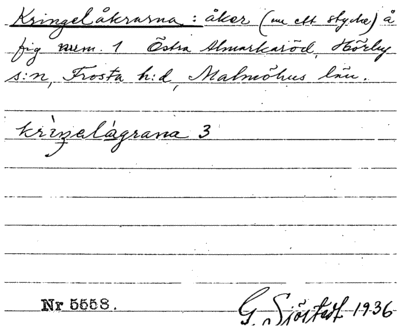 Kringelåkrarna : åker (nu ett stycke) å
fig num. 1 Östra Almarkaröd, Hörby
s:n, Frosta h:d, Malmöhus län.
kriŋelågrana 3
Nr 5558.
G. Sjöstedt 1936